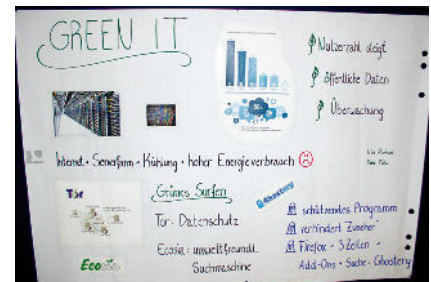 GREEN IT
Nutzerzahl steigt
öffentliche Daten
Überwachung
Internet + Serverfarm + Kühlung = hoher Energieverbrauch
Grünes Surfen
Ghostery
Tor
Tor: Datenschutz
Ecosia: umweltfreundl.
Suchmaschine
Ecosia
schützendes Programm
verhindert "Zuseher"
Firefox - 3 Zeilen -
Add-Ons - Suche: Ghostery